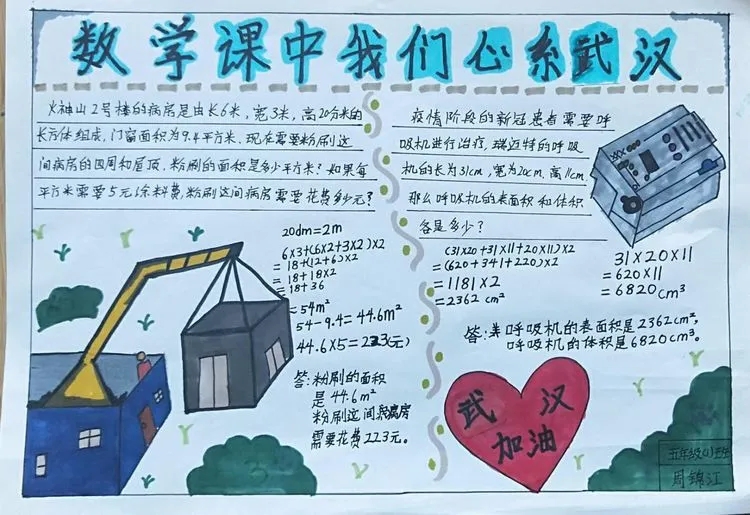 数学课中我们心系武汉
火神山2号楼的病房是由长6米,宽3米,高20分米的
长方体组成,门窗面积为9.4平方米,现在需要粉刷这
间病房的四周和屋顶,粉刷的面积是多少平方米?如果每
平方米需要5元涂料费,粉刷这间病房需要花费多少元?
20dm=2m
6×3+(6×2+3×2)×2
=18+(12+6)×2
=18+18×2
=18+36
=54m²
54-9.4=44.6m²
44.6×5=223(元)
答:粉刷的面积
是44.6m²
粉刷这间病房
需要花费223元。
疫情阶段的新冠患者需要呼
吸机进行治疗,瑞迈特的呼吸
机的长为31cm,宽为20cm,高11cm,
那么呼吸机的表面积和体积
各是多少?
(31×20+31×11+20×11)×2
=(620+341+220)×2
=1181×2
=2362 cm²
31×20×11
=620×11
=6820cm³
答:呼吸机的表面积是2362cm²,
呼吸机的体积是6820cm³。
武汉
加油
五年级(1)班
周锦江